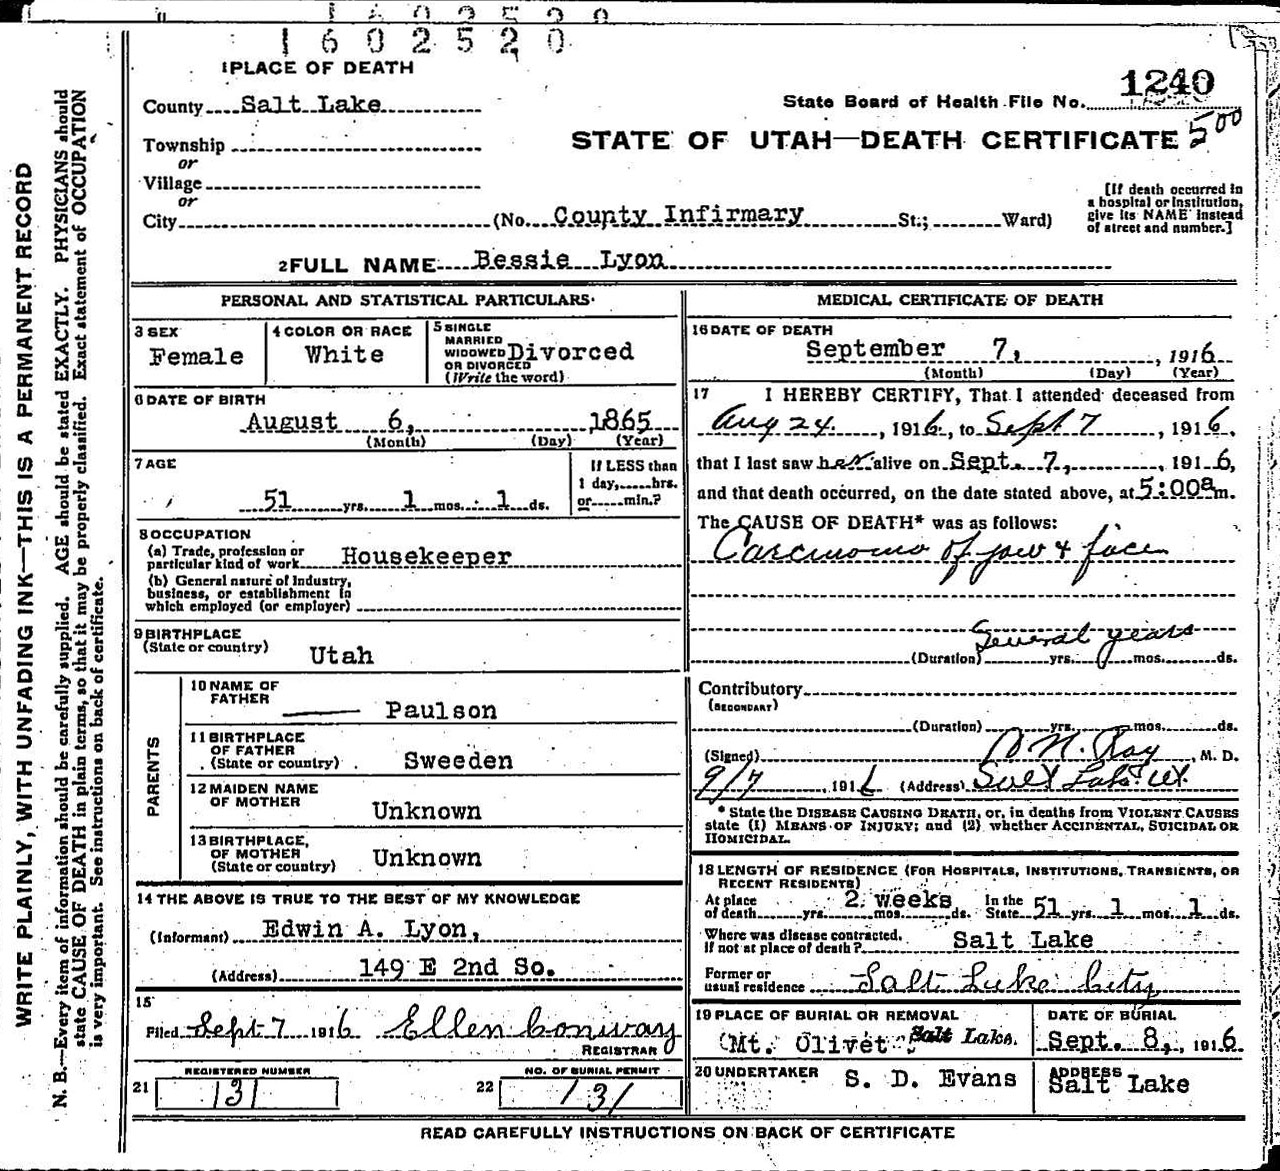 1602520
1 PLACE OF DEATH
County Salt Lake
State Board of Health File No. 1240
Township
STATE OF UTAH—DEATH CERTIFICATE 500
or
Village
or
City (No. County Infirmary St.; Ward)
[If death occurred in
a hospital or institution,
give its NAME instead
of street and number.]
2 FULL NAME Bessie Lyon
PERSONAL AND STATISTICAL PARTICULARS
3 SEX
Female
4 COLOR OR RACE
White
5 SINGLE
MARRIED
WIDOWED
OR DIVORCED
(Write the word)
Divorced
6 DATE OF BIRTH
August 6, 1865
(Month) (Day) (Year)
7 AGE
51 yrs. 1 mos. 1 ds.
If LESS than
1 day, hrs.
or min.?
8 OCCUPATION
(a) Trade, profession or
particular kind of work Housekeeper
(b) General nature of Industry,
business, or establishment in
which employed (or employer)
9 BIRTHPLACE
(State or country)
Utah
PARENTS
10 NAME OF
FATHER
Paulson
11 BIRTHPLACE
OF FATHER
(State or country)
Sweeden
12 MAIDEN NAME
OF MOTHER
Unknown
13 BIRTHPLACE,
OF MOTHER
(State or country)
Unknown
14 THE ABOVE IS TRUE TO THE BEST OF MY KNOWLEDGE
(Informant) Edwin A. Lyon,
(Address) 149 E 2nd So.
15
Filed Sept 7 1916 Ellen Conway
REGISTRAR
21 REGISTERED NUMBER
131
22 NO. OF BURIAL PERMIT
131
MEDICAL CERTIFICATE OF DEATH
16 DATE OF DEATH
September 7, , 1916
(Month) (Day) (Year)
17 I HEREBY CERTIFY, That I attended deceased from
Aug 24 , 1916, to Sept 7 , 1916,
that I last saw her alive on Sept. 7, , 1916,
and that death occurred, on the date stated above, at 5:00a m.
The CAUSE OF DEATH* was as follows:
Carcinoma of jaw & face
Several years
(Duration) yrs. mos. ds.
Contributory
(SECONDARY)
(Duration) yrs. mos. ds.
(Signed) N. Ray, M. D.
9/7, 1916 (Address) Salt Lake Ut.
* State the DISEASE CAUSING DEATH, or, in deaths from VIOLENT CAUSES
state (1) MEANS OF INJURY; and (2) whether ACCIDENTAL, SUICIDAL OR
HOMICIDAL.
18 LENGTH OF RESIDENCE (FOR HOSPITALS, INSTITUTIONS, TRANSIENTS, OR
RECENT RESIDENTS)
At place
of death yrs. 2 weeks mos. ds. In the
State 51 yrs. 1 mos. 1 ds.
Where was disease contracted,
if not at place of death? Salt Lake
Former or
usual residence Salt Lake City
19 PLACE OF BURIAL OR REMOVAL
Mt. Olivet Salt Lake.
DATE OF BURIAL
Sept. 8, , 1916
20 UNDERTAKER S. D. Evans
ADDRESS
Salt Lake
READ CAREFULLY INSTRUCTIONS ON BACK OF CERTIFICATE
WRITE PLAINLY, WITH UNFADING INK—THIS IS A PERMANENT RECORD
N. B.—Every item of information should be carefully supplied. AGE should be stated EXACTLY. PHYSICIANS should
state CAUSE OF DEATH in plain terms, so that it may be properly classified. Exact statement of OCCUPATION
is very important. See instructions on back of certificate.